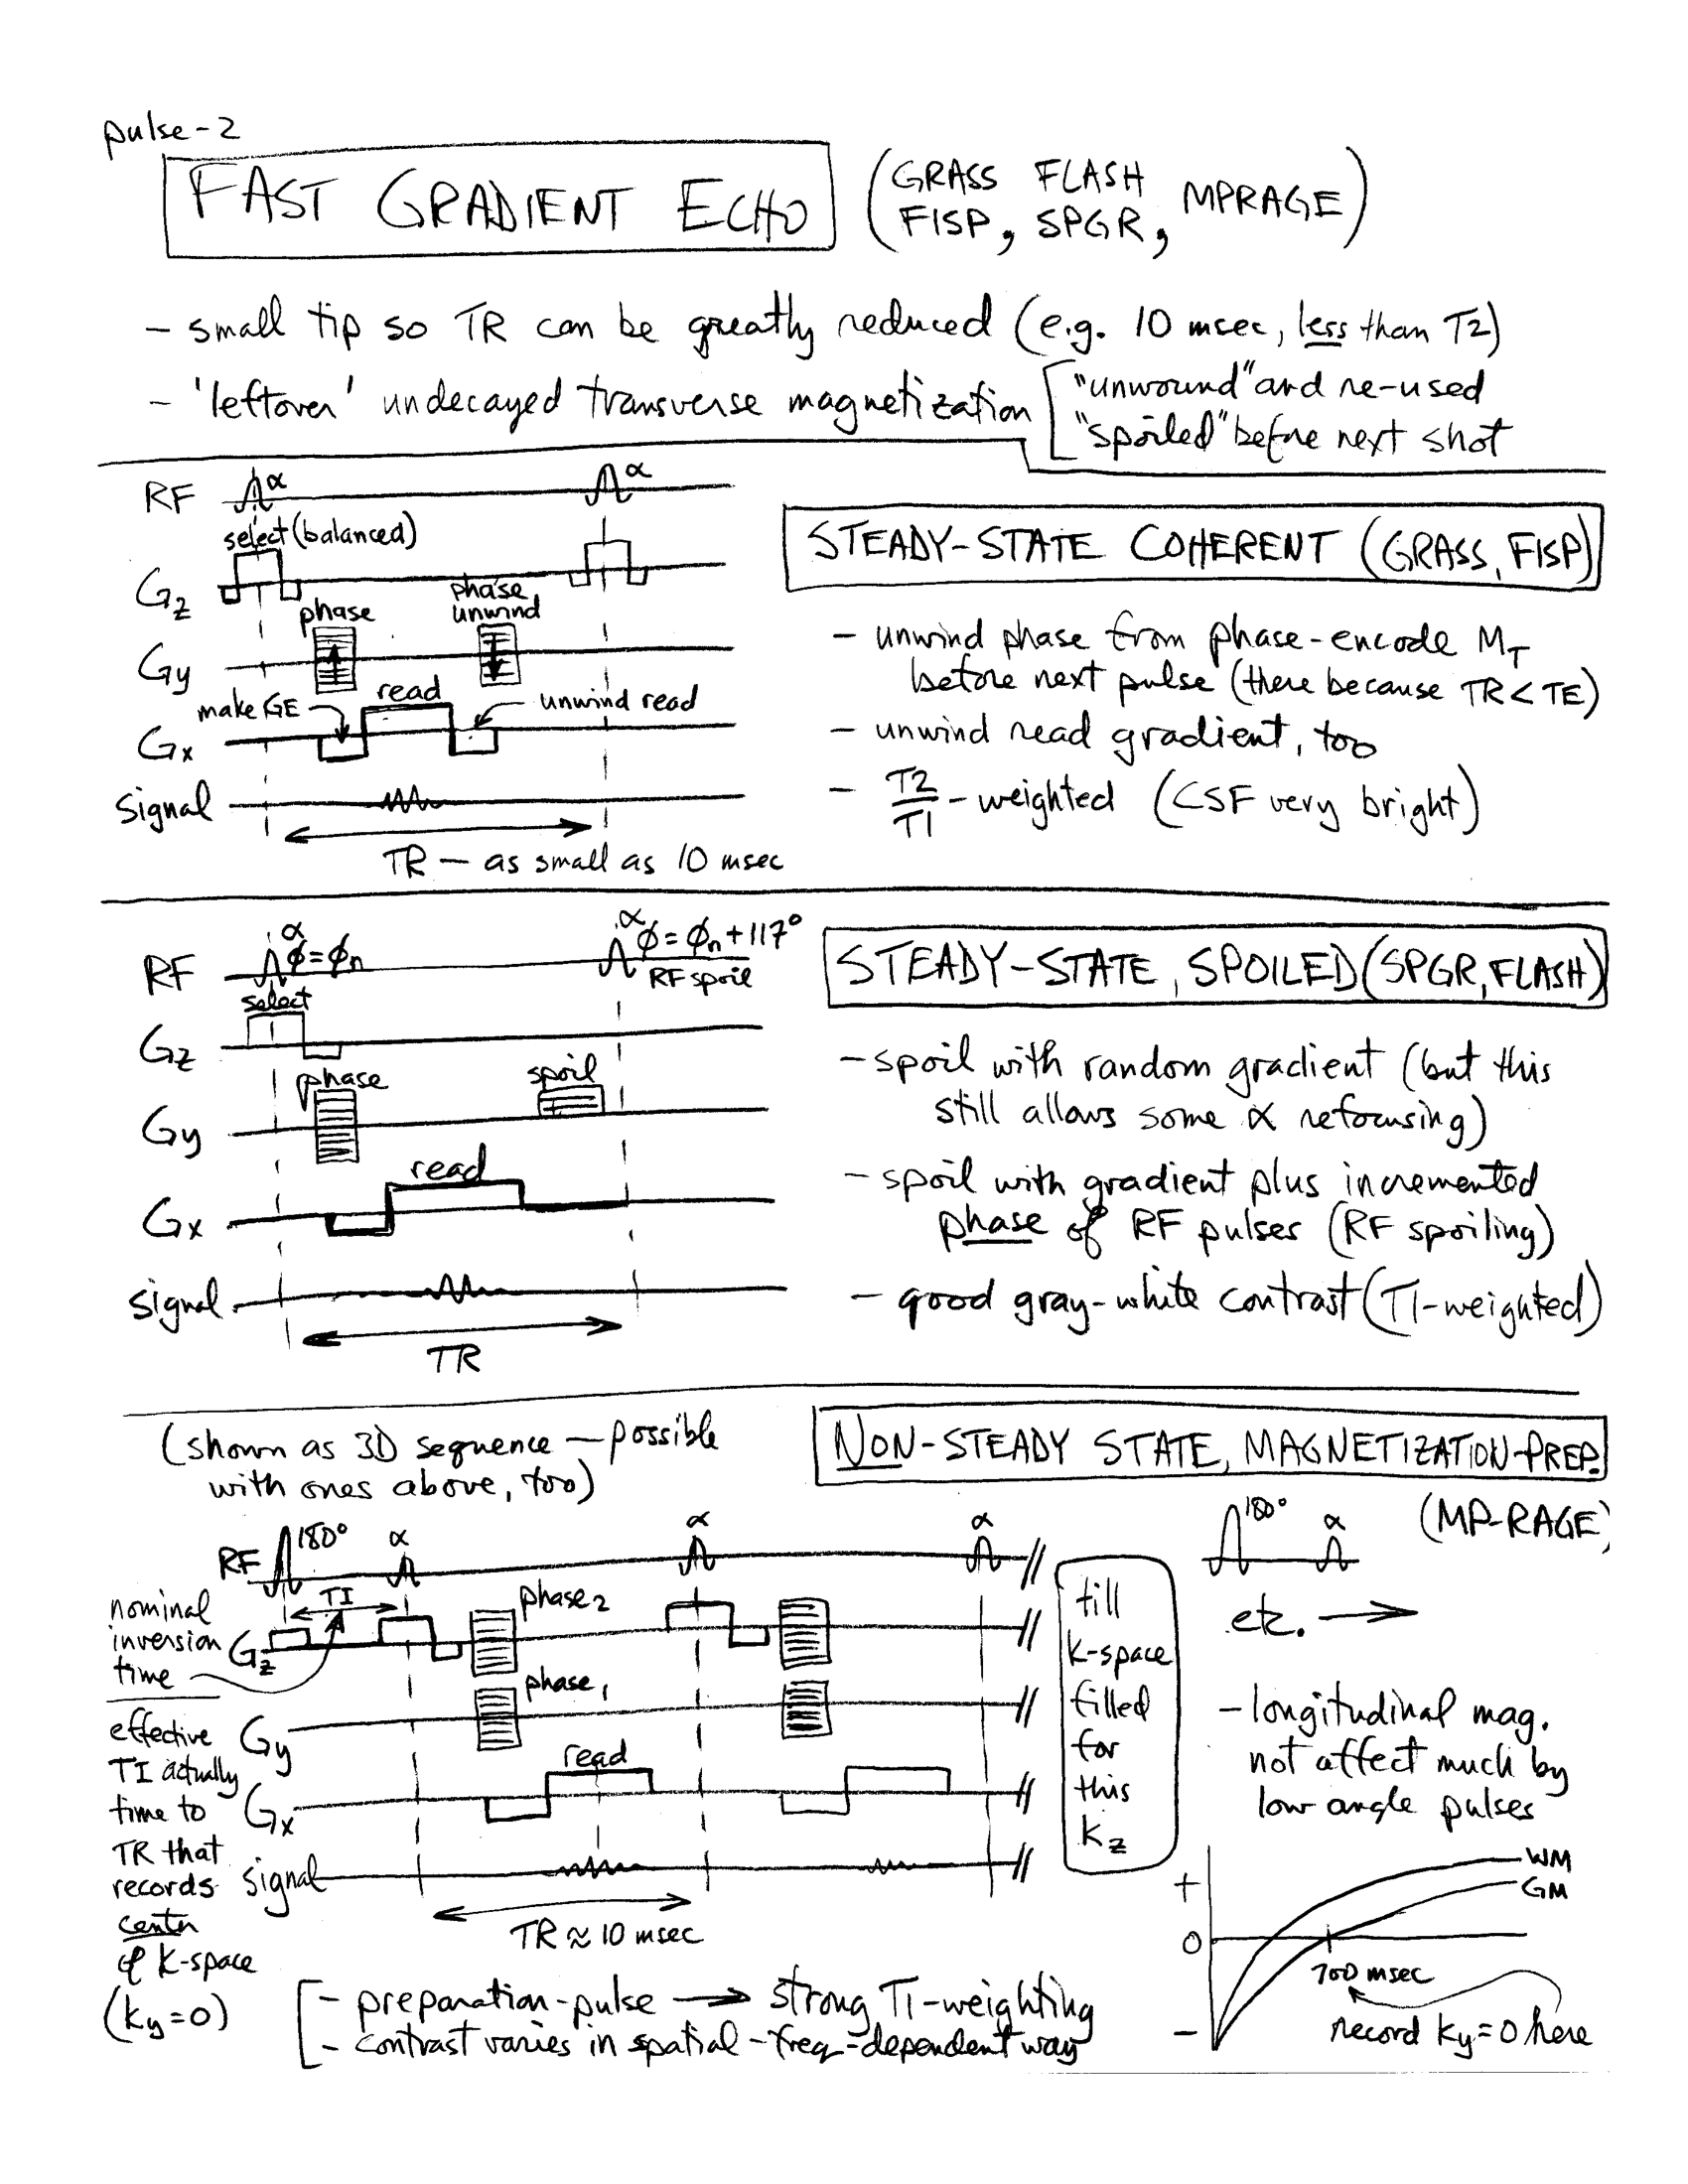 pulse-2
FAST GRADIENT ECHO (GRASS FLASH
FISP, SPGR, MPRAGE)
- small tip so TR can be greatly reduced (e.g. 10 msec, less than T2)
- 'leftover' undecayed transverse magnetization
"unwound" and re-used
"spoiled" before next shot
RF α α
select (balanced)
Gz
phase
phase
unwind
Gy
make GE read unwind read
Gx
signal
TR — as small as 10 msec
STEADY-STATE COHERENT (GRASS, FISP)
- unwind phase from phase-encode MT
before next pulse (there because TR < TE)
- unwind read gradient, too
- T2/T1 - weighted (CSF very bright)
RF α ϕ=ϕn α ϕ=ϕn+117°
RF spoil
select
Gz
phase spoil
Gy
read
Gx
signal
TR
STEADY-STATE, SPOILED (SPGR, FLASH)
- spoil with random gradient (but this
still allows some α refocusing)
- spoil with gradient plus incremented
phase of RF pulses (RF spoiling)
- good gray-white contrast (T1-weighted)
(shown as 3D sequence — possible
with ones above, too)
NON-STEADY STATE, MAGNETIZATION-PREP.
(MP-RAGE)
RF 180° α α α
TI
nominal
inversion
time
Gz
phase2
phase1
Gy
read
Gx
signal
TR ≈ 10 msec
effective
TI actually
time to
TR that
records
center
of k-space
(ky=0)
till
k-space
filled
for
this
kz
180° α
etc. →
- longitudinal mag.
not affect much by
low angle pulses
WM
GM
+
0
-
700 msec
record ky=0 here
- preparation-pulse → strong T1-weighting
- contrast varies in spatial-freq-dependent way